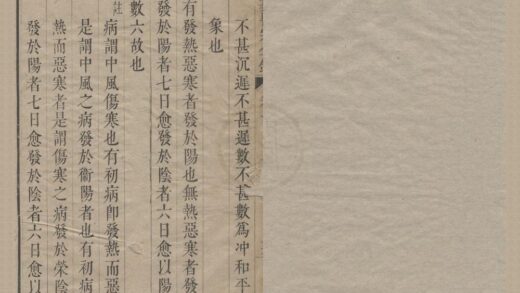 不甚沉遲不甚遲數不甚數爲冲和平
象也
有發熱惡寒者發於陽也無熱惡寒者發
發於陽者七日愈發於陰者六日愈以陽
數六故也
註
病謂中風傷寒也有初病卽發熱而惡
是謂中風之病發於衞陽者也有初病
熱而惡寒者是謂傷寒之病發於榮陰
發於陽者七日愈發於陰者六日愈以